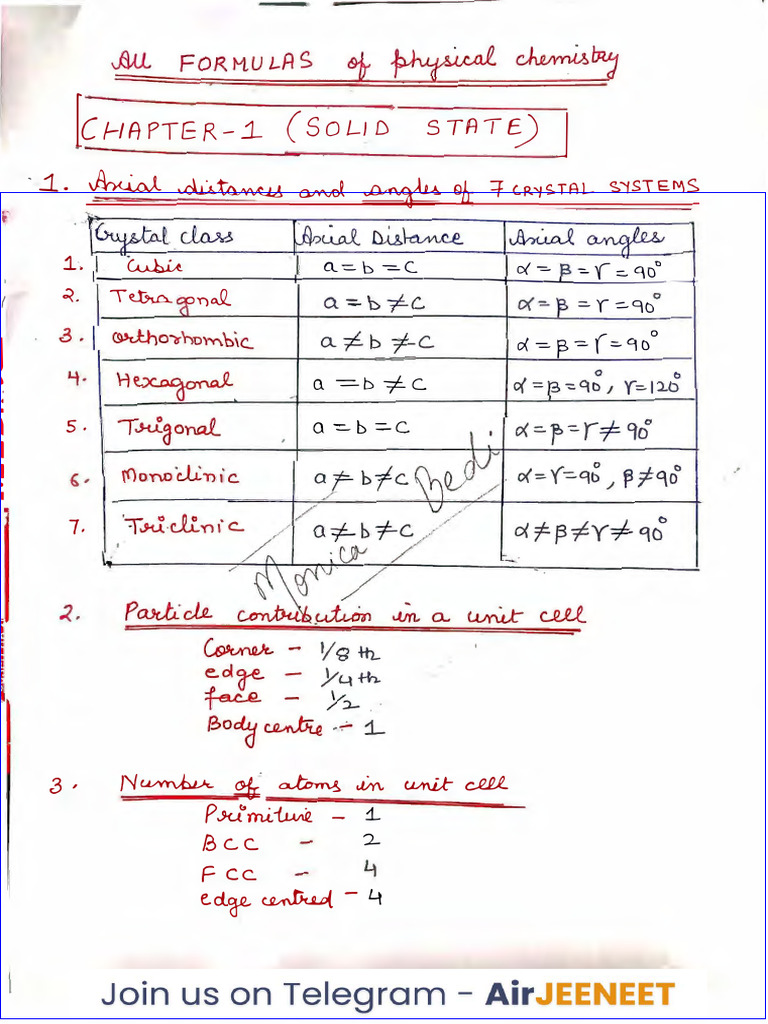 All FORMULAS of physical chemistry
CHAPTER-1 (SOLID STATE)
1. Axial distances and angles of 7 CRYSTAL SYSTEMS
Crystal class Axial Distance Axial angles
1. Cubic a = b = c α = β = γ = 90°
2. Tetragonal a = b ≠ c α = β = γ = 90°
3. orthorhombic a ≠ b ≠ c α = β = γ = 90°
4. Hexagonal a = b ≠ c α = β = 90°, γ = 120°
5. Trigonal a = b = c α = β = γ ≠ 90°
6. Monoclinic a ≠ b ≠ c α = γ = 90°, β ≠ 90°
7. Triclinic a ≠ b ≠ c α ≠ β ≠ γ ≠ 90°
Monica Bedi
2. Particle contribution in a unit cell
Corner - 1/8 th
edge - 1/4 th
face - 1/2
Body centre - 1
3. Number of atoms in unit cell
Primitive - 1
BCC - 2
FCC - 4
edge centred - 4
Join us on Telegram - AirJEENEET